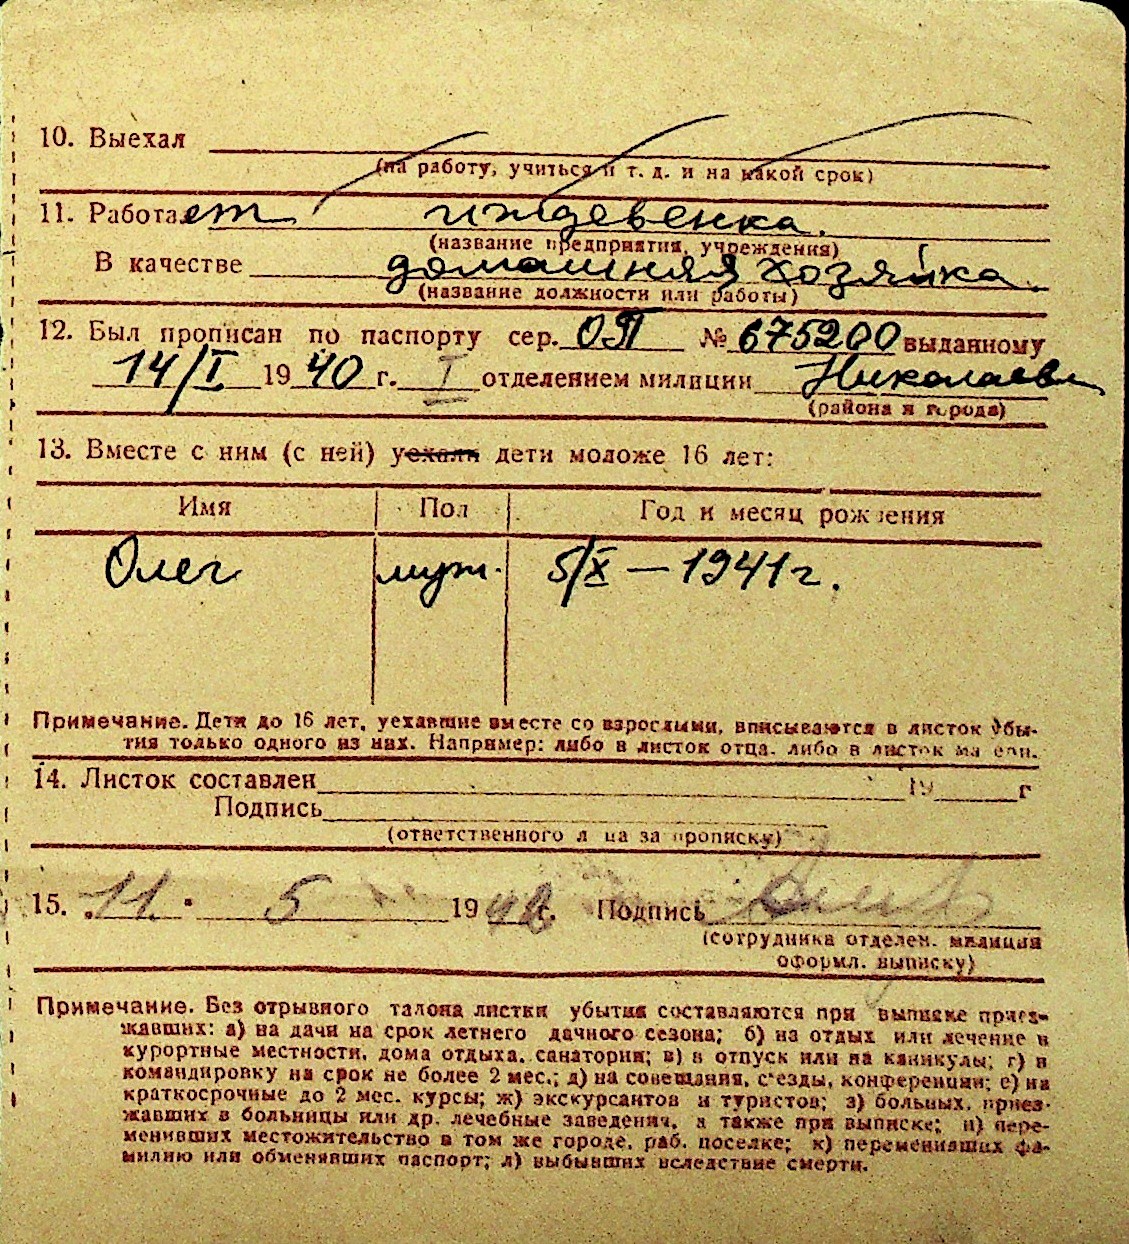 10. Выехал
(на работу, учиться и т. д. и на какой срок)
11. Работает иждевенка.
(название предприятия, учреждения)
В качестве домашняя хозяйка.
(название должности или работы)
12. Был прописан по паспорту сер. ОП № 675200 выданному
14/I 1940 г. I отделением милиции Николаев
(района и города)
13. Вместе с ним (с ней) уехали дети моложе 16 лет:
Имя Пол Год и месяц рождения
Олег муж. 5/X — 1941 г.
Примечание. Дети до 16 лет, уехавшие вместе со взрослыми, вписываются в листок убы-
тия только одного из них. Например: либо в листок отца, либо в листок матери.
14. Листок составлен 19 г
Подпись
(ответственного лица за прописку)
15. 11. 5 19 г. Подпись
(сотрудника отделен. милиции
оформл. выписку)
Примечание. Без отрывного талона листки убытия составляются при выписке приез-
жавших: а) на дачи на срок летнего дачного сезона; б) на отдых или лечение в
курортные местности, дома отдыха, санатории; в) в отпуск или на каникулы; г) в
командировку на срок не более 2 мес.; д) на совещания, съезды, конференции; е) на
краткосрочные до 2 мес. курсы; ж) экскурсантов и туристов; з) больных, приез-
жавших в больницы или др. лечебные заведения, а также при выписке; и) пере-
менивших местожительство в том же городе, раб. поселке; к) переменивших фа-
милию или обменявших паспорт; л) выбывших вследствие смерти.